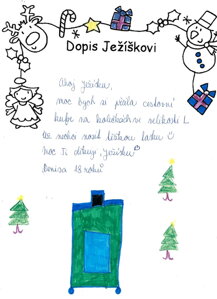 Dopis Ježíškovi
Ahoj Ježíšku,
moc bych si přála cestovní
kufr na kolečkách ve velikosti L
ať mohu nosit látkou
moc Ti děkuji Ježíšku
Denisa 18 roků